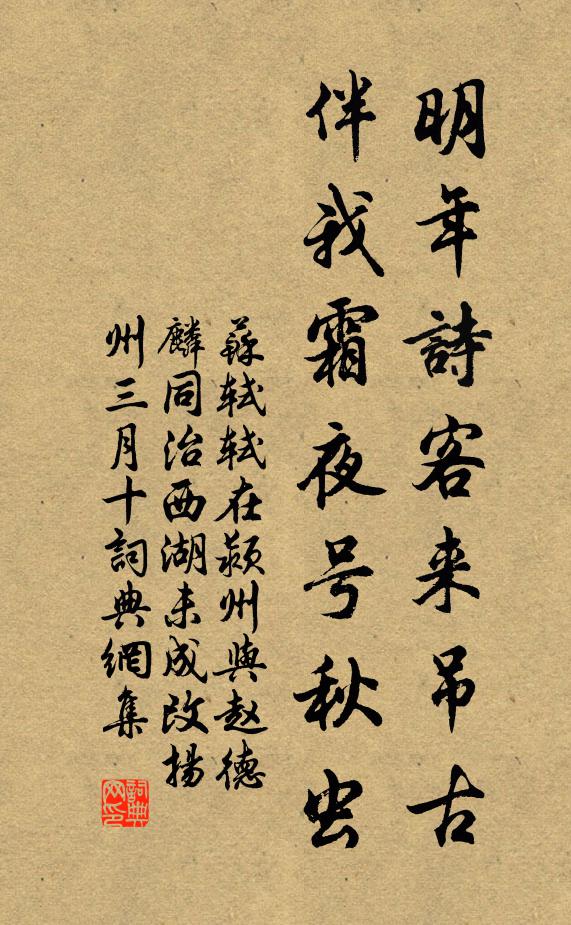 明年詩客来吊古
伴我霜夜号秋虫
蘇轼轼在颍州與赵德
麟同治西湖未成改揚
州三月十詞典網集
詞典网印